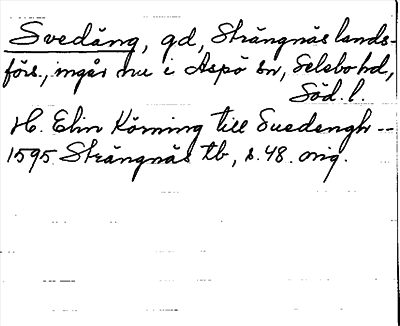 Svedäng, gd, Strängnäs lands-
förs., ingår nu i Aspö sn, Selebo hd,
Söd. l.
H. Elin Körning till Suedengh --
1595 Strängnäs tb, s. 48. orig.